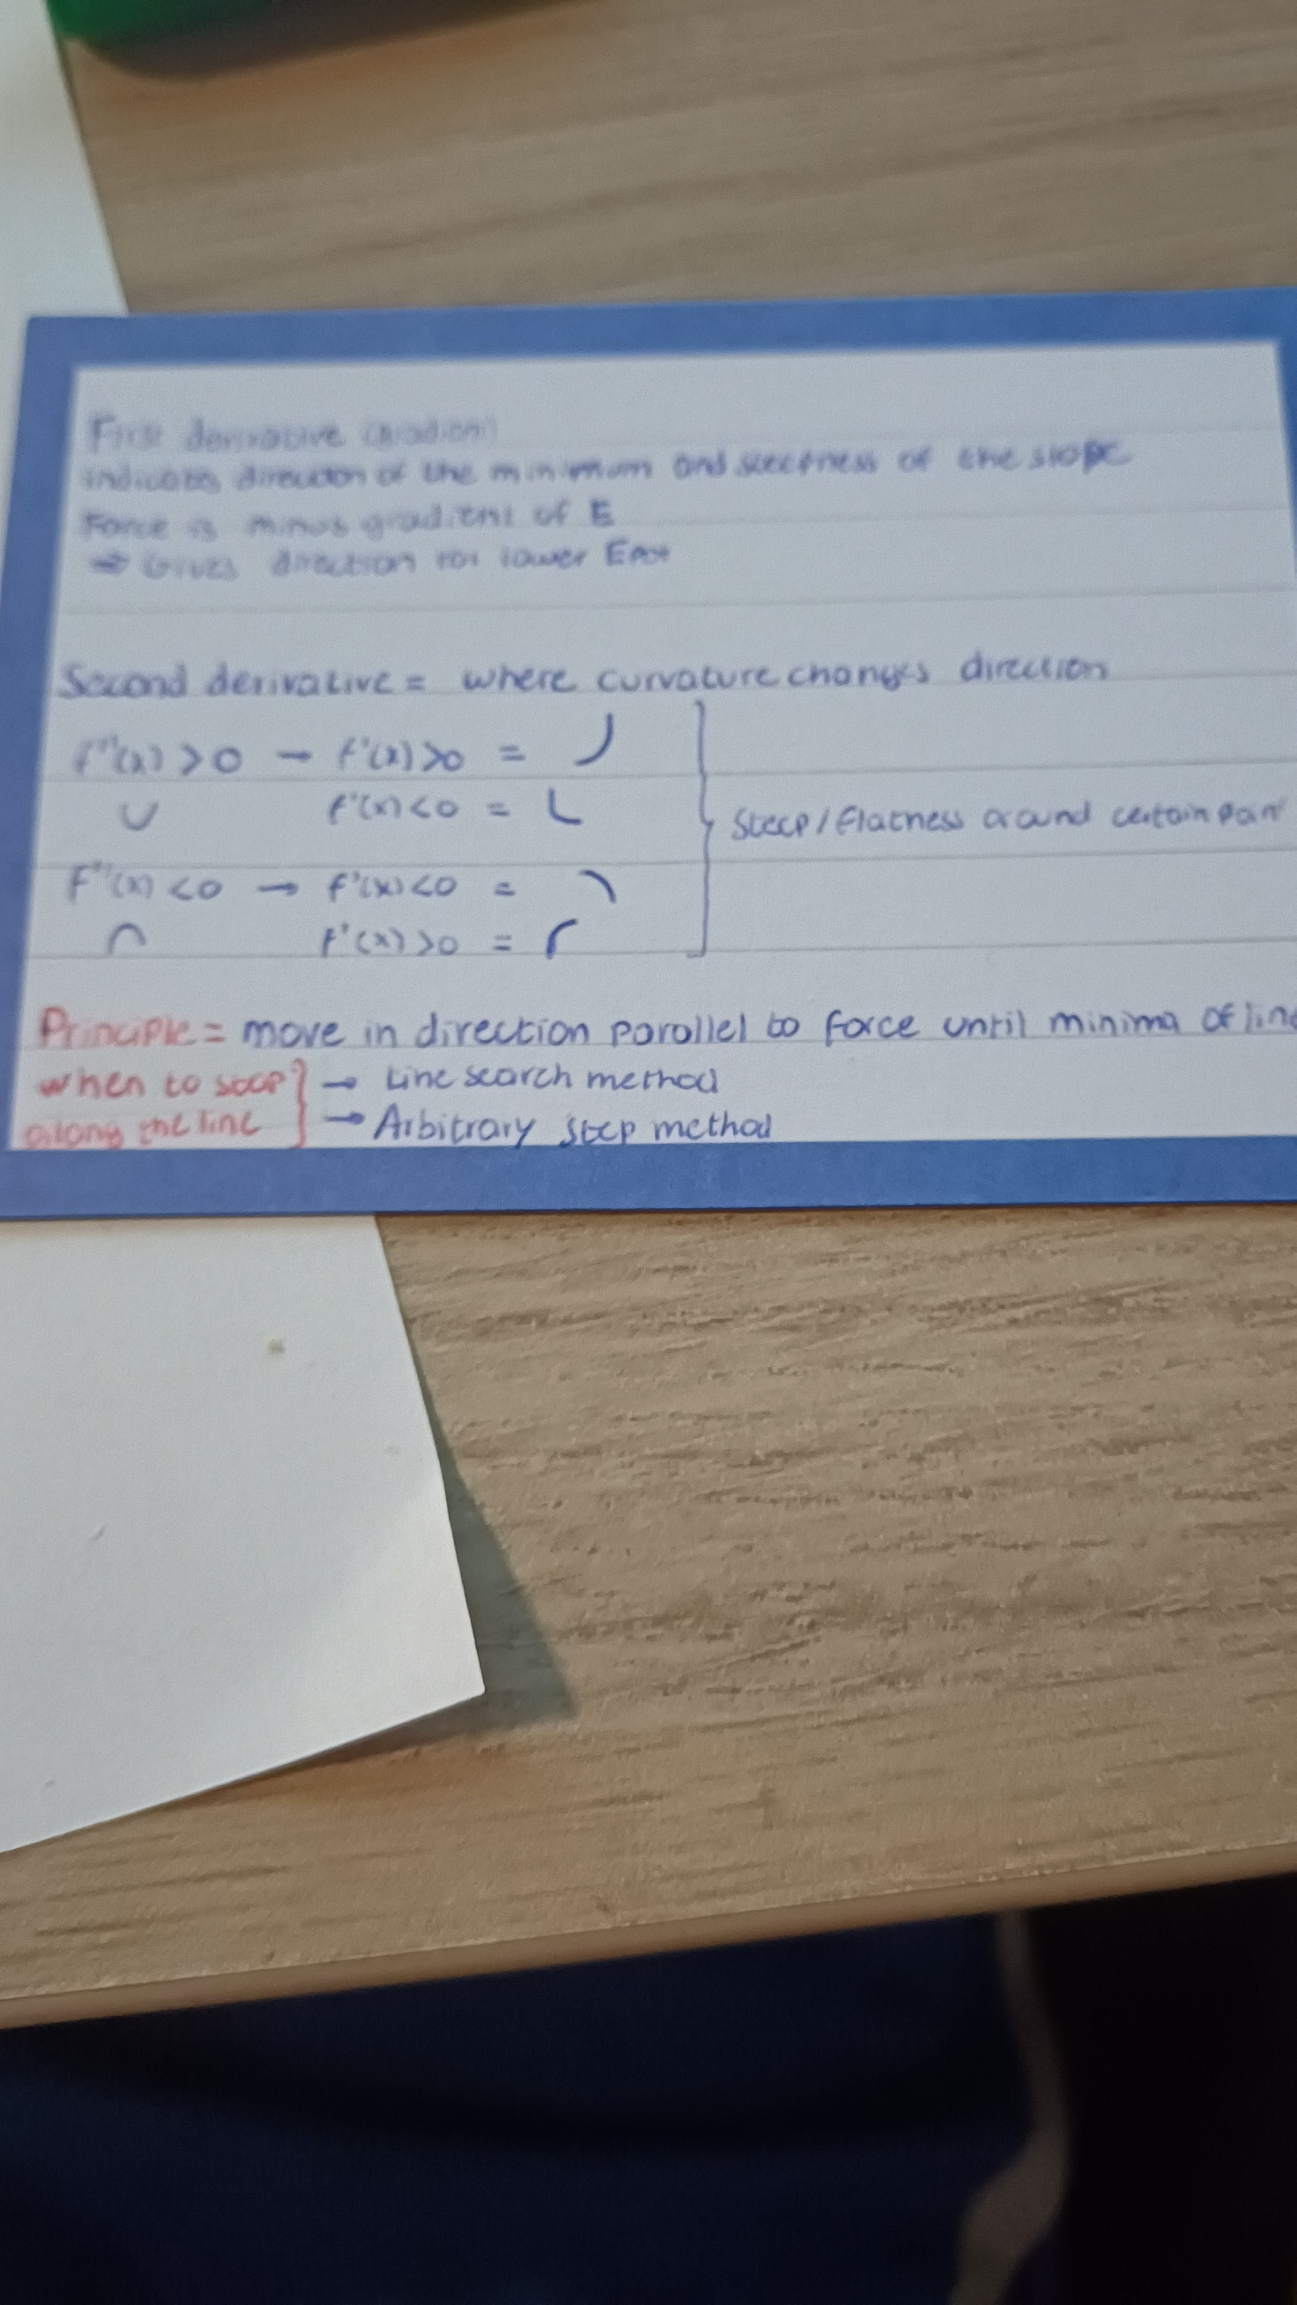 First derivative (gradient)
indicates direction of the minimum and steepness of the slope
Force is minus gradient of E
⇒ Gives direction for lower Epot
Second derivative = where curvature changes direction
f''(x) > 0 → f'(x) > 0 =
∪ f'(x) < 0 =
f''(x) < 0 → f'(x) < 0 =
∩ f'(x) > 0 =
Steep / flatness around certain point
Principle = move in direction parallel to force until minima of line
when to stop → Line search method
along the line → Arbitrary step method